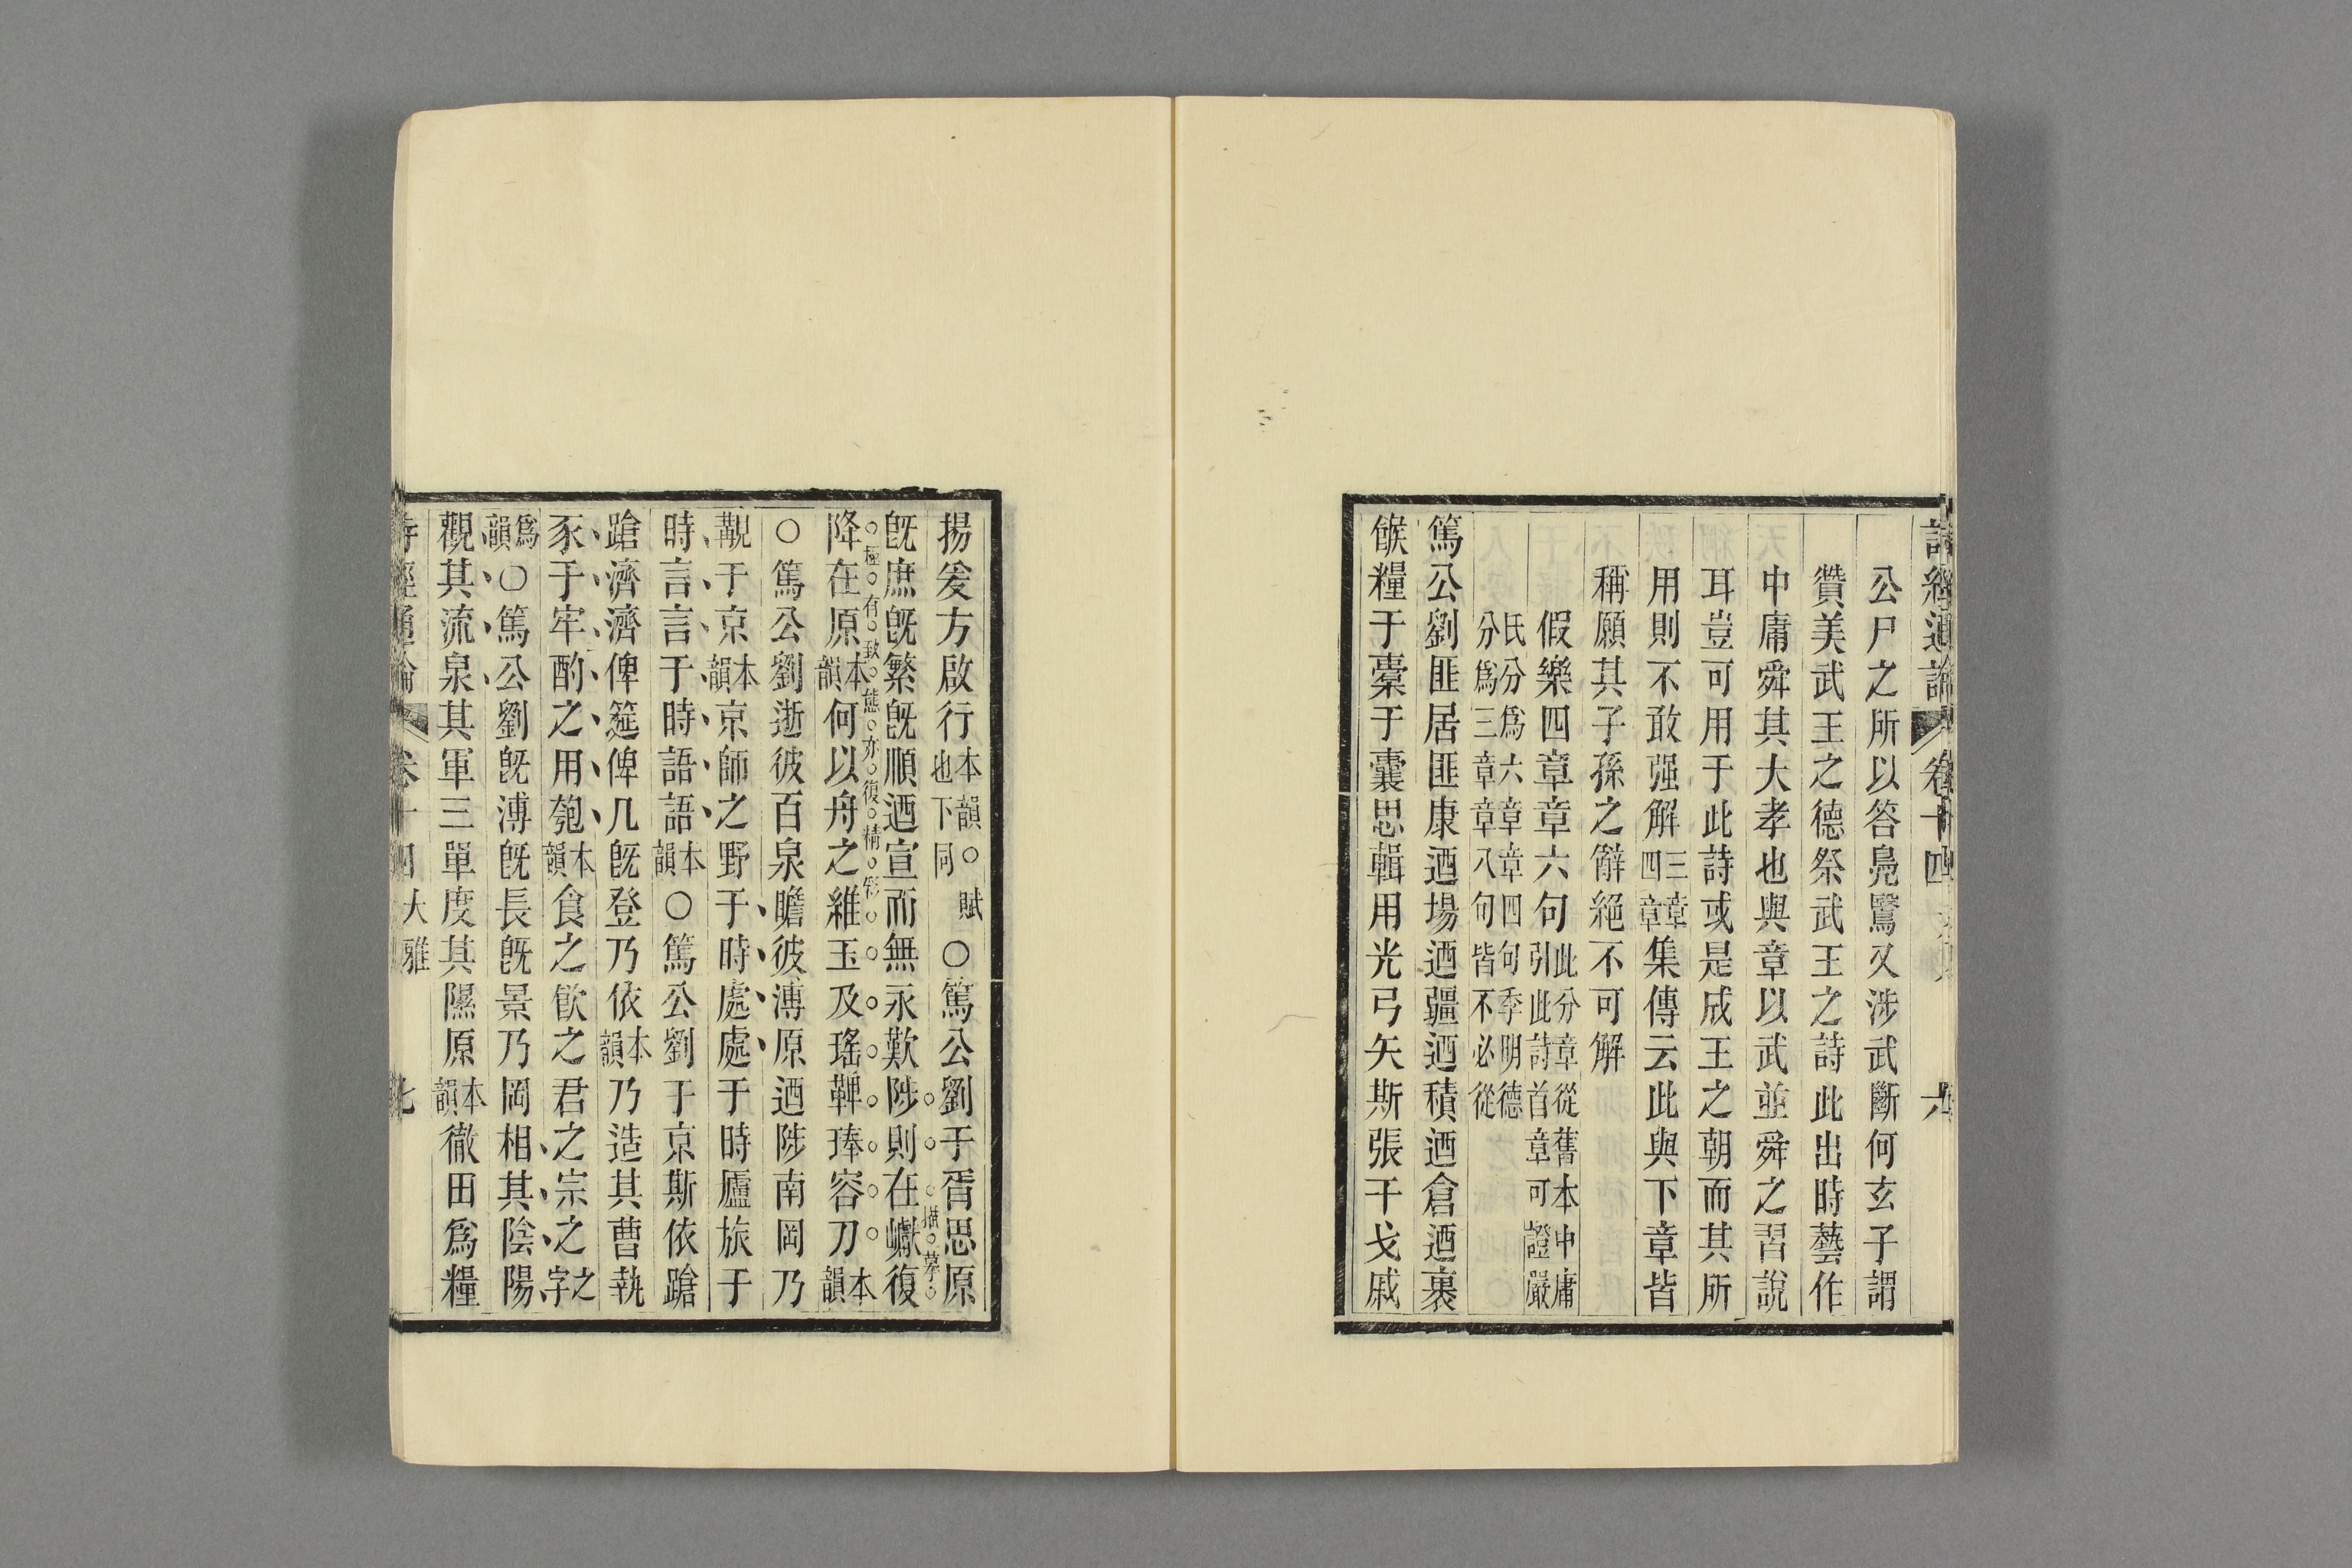 詩經通論 卷十四 六
公尸之所以答鳧鷖又涉武斷何玄子謂
贊美武王之德祭武王之詩此出時藝作
中庸舜其大孝也與章以武並舜之習說
耳豈可用于此詩或是成王之朝而其所
用則不敢强解三章四章集傳云此與下章皆
稱願其子孫之辭絕不可解
假樂四章章六句此分章從舊本中庸引此詩首章可證嚴
氏分爲六章章四句季明德分爲三章章八句皆不必從
篤公劉匪居匪康迺場迺疆迺積迺倉迺裹
餱糧于橐于囊思輯用光弓矢斯張干戈戚
揚爰方啟行本韻○賦也下同○篤公劉于胥思原
○描○摹○
旣庶旣繁旣順迺宣而無永歎陟則在巘復
○極○有○致○態○亦○復○精○彩○
降在原本韻何以舟之維玉及瑤鞞琫容刀本韻
○篤公劉逝彼百泉瞻彼溥原迺陟南岡乃
覯于京本韻京師之野于時處處于時廬旅于
時言言于時語語本韻○篤公劉于京斯依蹌
蹌濟濟俾筵俾几旣登乃依本韻乃造其曹執
豕于牢酌之用匏本韻食之飮之君之宗之之字
爲韻○篤公劉旣溥旣長旣景乃岡相其陰陽
觀其流泉其軍三單度其隰原本韻徹田爲糧
詩經通論 卷十四 大雅 七